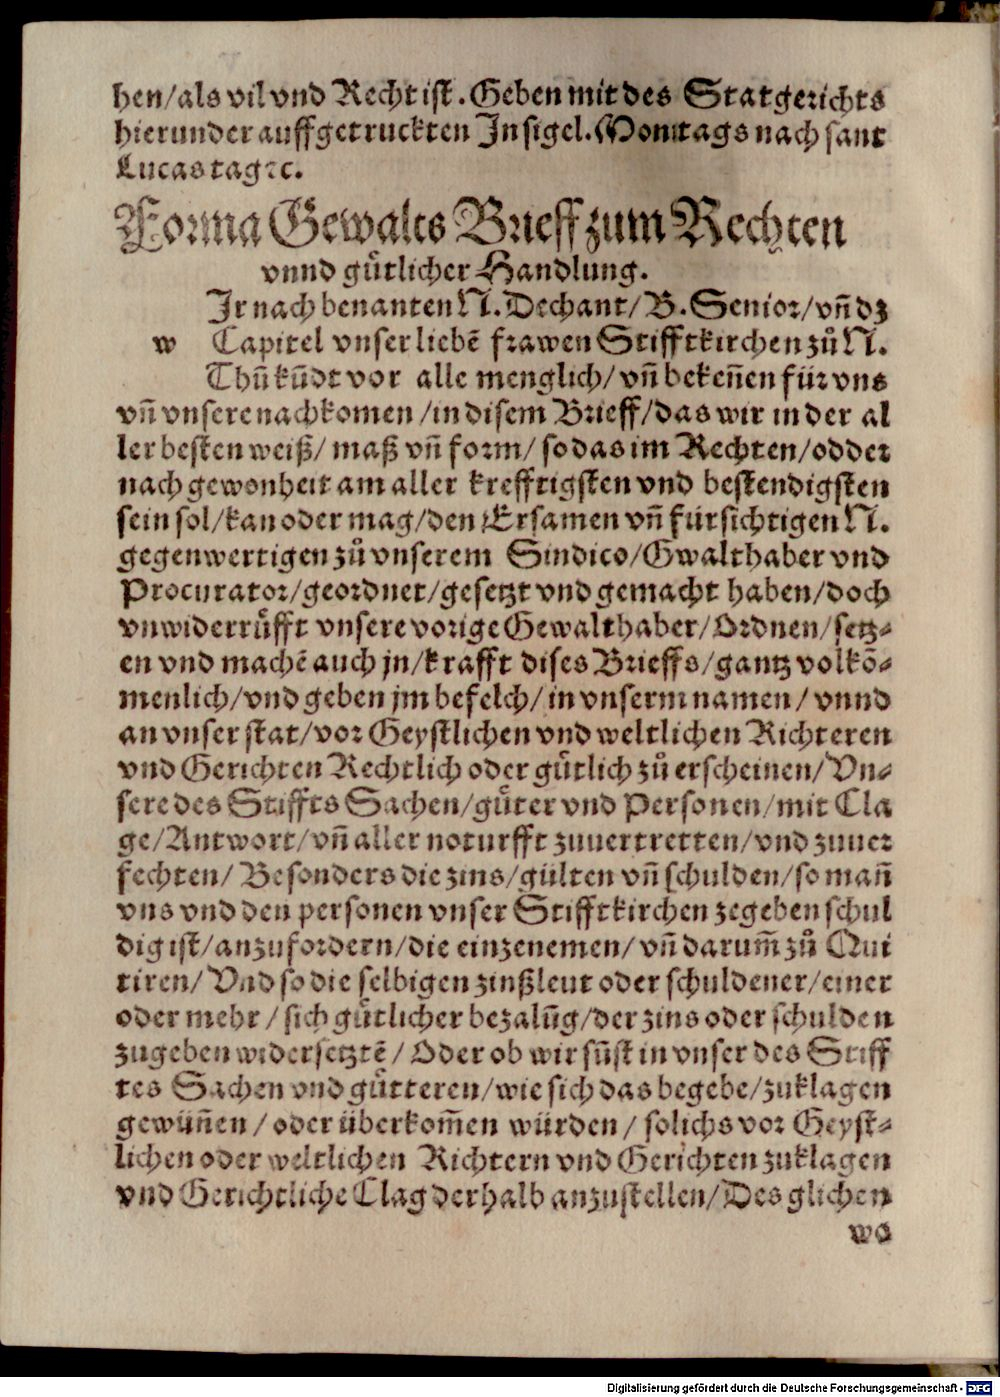 hen/als vil vnd Recht ist. Geben mit des Statgerichts
hierunder auffgetruckten Insigel. Montags nach sant
Lucas tag ꝛc.
Forma Gewalts Brieff zum Rechten
vnnd guͤtlicher Handlung.
Ir nach benanten N. Dechant/ B. Senior/ vn̄ dz
w Capitel vnser liebē frawen Stifftkirchen zů N.
Thūkūdt vor alle menglich/ vn̄ bekeñen für vns
vn̄ vnsere nachkomen /in disem Brieff/das wir in der al
ler besten weiß/ maß vn̄ form/ so das im Rechten/odder
nach gewonheit am aller krefftigsten vnd bestendigsten
sein sol/kan oder mag/den Ersamen vn̄ fürsichtigen N.
gegenwertigen zů vnserem Sindico/Gwalthaber vnd
Procurator/geordnet/gesetzt vnd gemacht haben/doch
vnwiderruͤfft vnsere vorige Gewalthaber/Ordnen/setz⸗
en vnd machē auch jn/krafft dises Brieffs/gantz volkō⸗
menlich/vnd geben jm befelch/in vnserm namen/ vnnd
an vnser stat/vor Geystlichen vnd weltlichen Richteren
vnd Gerichten Rechtlich oder guͤtlich zů erscheinen/Vn⸗
sere des Stiffts Sachen/guͤter vnd Personen/mit Cla
ge/Antwort/vn̄ aller noturfft zuuertretten/vnd zuuer
fechten/ Besonders die zins/gülten vn̄ schulden/so mañ
vns vnd den personen vnser Stifftkirchen zegeben schul
dig ist/anzufordern/die einzenemen/ vn̄ darum̄ zů Qui
tiren/ Vnd so die selbigen zinßleut oder schuldener/einer
oder mehr / sich guͤtlicher bezalūg/der zins oder schulden
zugeben widersetztē / Oder ob wir sūst in vnser des Stiff
tes Sachen vnd guͤtteren/wie sich das begebe/zuklagen
gewūnen / oder überkom̄en würden/ solichs vor Geyst⸗
lichen oder weltlichen Richtern vnd Gerichten zuklagen
vnd Gerichtliche Clag derhalb anzustellen/Des glichen
wa
Digitalisierung gefördert durch die Deutsche Forschungsgemeinschaft - DFG